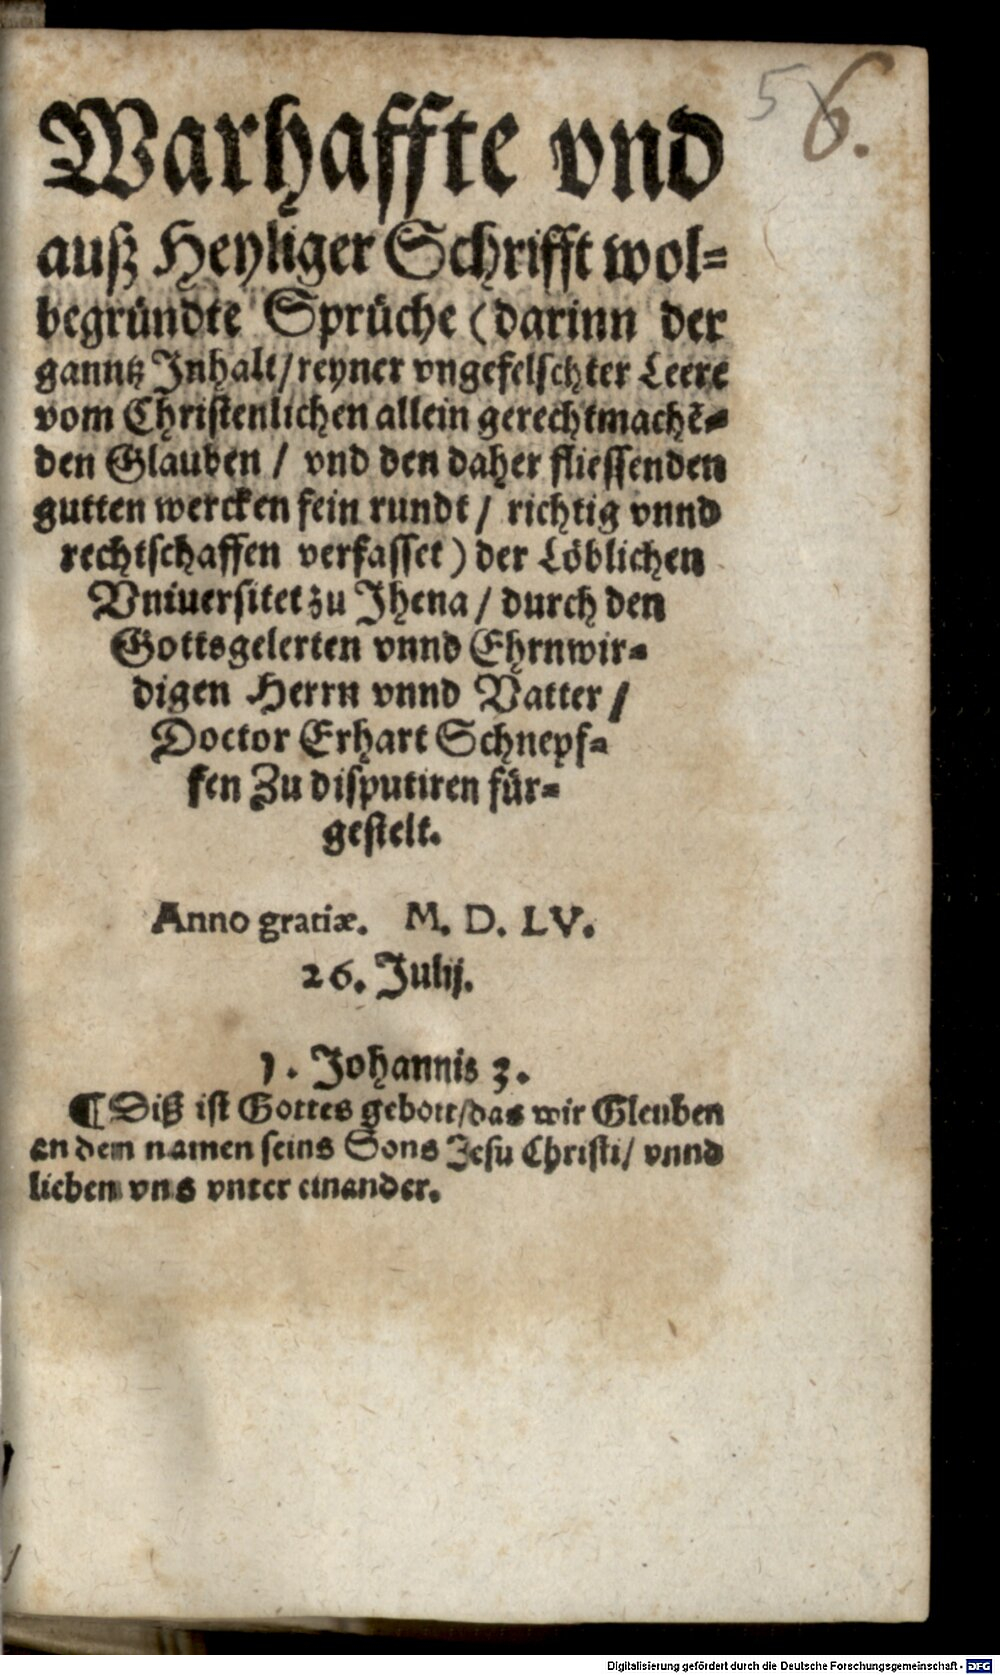 5 6.
Warhaffte vnd
auß Heyliger Schrifft wol=
begründte Sprüche (darinn der
ganntz Inhalt / reyner vngefelschter Leere
vom Christenlichen allein gerechtmachē=
den Glauben / vnd den daher fliessenden
gutten wercken fein rundt / richtig vnnd
rechtschaffen verfasset) der Löblichen
Vniuersitet zu Jhena / durch den
Gottsgelerten vnnd Ehrnwir=
digen Herrn vnnd Vatter /
Doctor Erhart Schnepf=
fen Zu disputiren für=
gestelt.
Anno gratiæ. M. D. LV.
26. Julij.
1. Johannis 3.
¶ Diß ist Gottes gebott / das wir Gleuben
an dem namen seins Sons Jesu Christi / vnnd
lieben vns vnter einander.
Digitalisierung gefördert durch die Deutsche Forschungsgemeinschaft - DFG